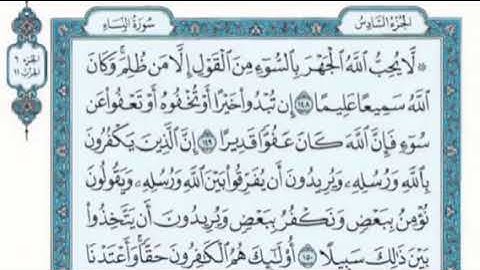 الجزء السادس
سورة النساء
الجزء ٦
الحزب ١١
۞ لَّا يُحِبُّ ٱللَّهُ ٱلْجَهْرَ بِٱلسُّوٓءِ مِنَ ٱلْقَوْلِ إِلَّا مَن ظُلِمَ ۚ وَكَانَ
ٱللَّهُ سَمِيعًا عَلِيمًا ١٤٨ إِن تُبْدُوا۟ خَيْرًا أَوْ تُخْفُوهُ أَوْ تَعْفُوا۟ عَن
سُوٓءٍ فَإِنَّ ٱللَّهَ كَانَ عَفُوًّا قَدِيرًا ١٤٩ إِنَّ ٱلَّذِينَ يَكْفُرُونَ
بِٱللَّهِ وَرُسُلِهِۦ وَيُرِيدُونَ أَن يُفَرِّقُوا۟ بَيْنَ ٱللَّهِ وَرُسُلِهِۦ وَيَقُولُونَ
نُؤْمِنُ بِبَعْضٍ وَنَكْفُرُ بِبَعْضٍ وَيُرِيدُونَ أَن يَتَّخِذُوا۟
بَيْنَ ذَٰلِكَ سَبِيلًا ١٥٠ أُو۟لَـٰٓئِكَ هُمُ ٱلْكَـٰفِرُونَ حَقًّا ۚ وَأَعْتَدْنَا